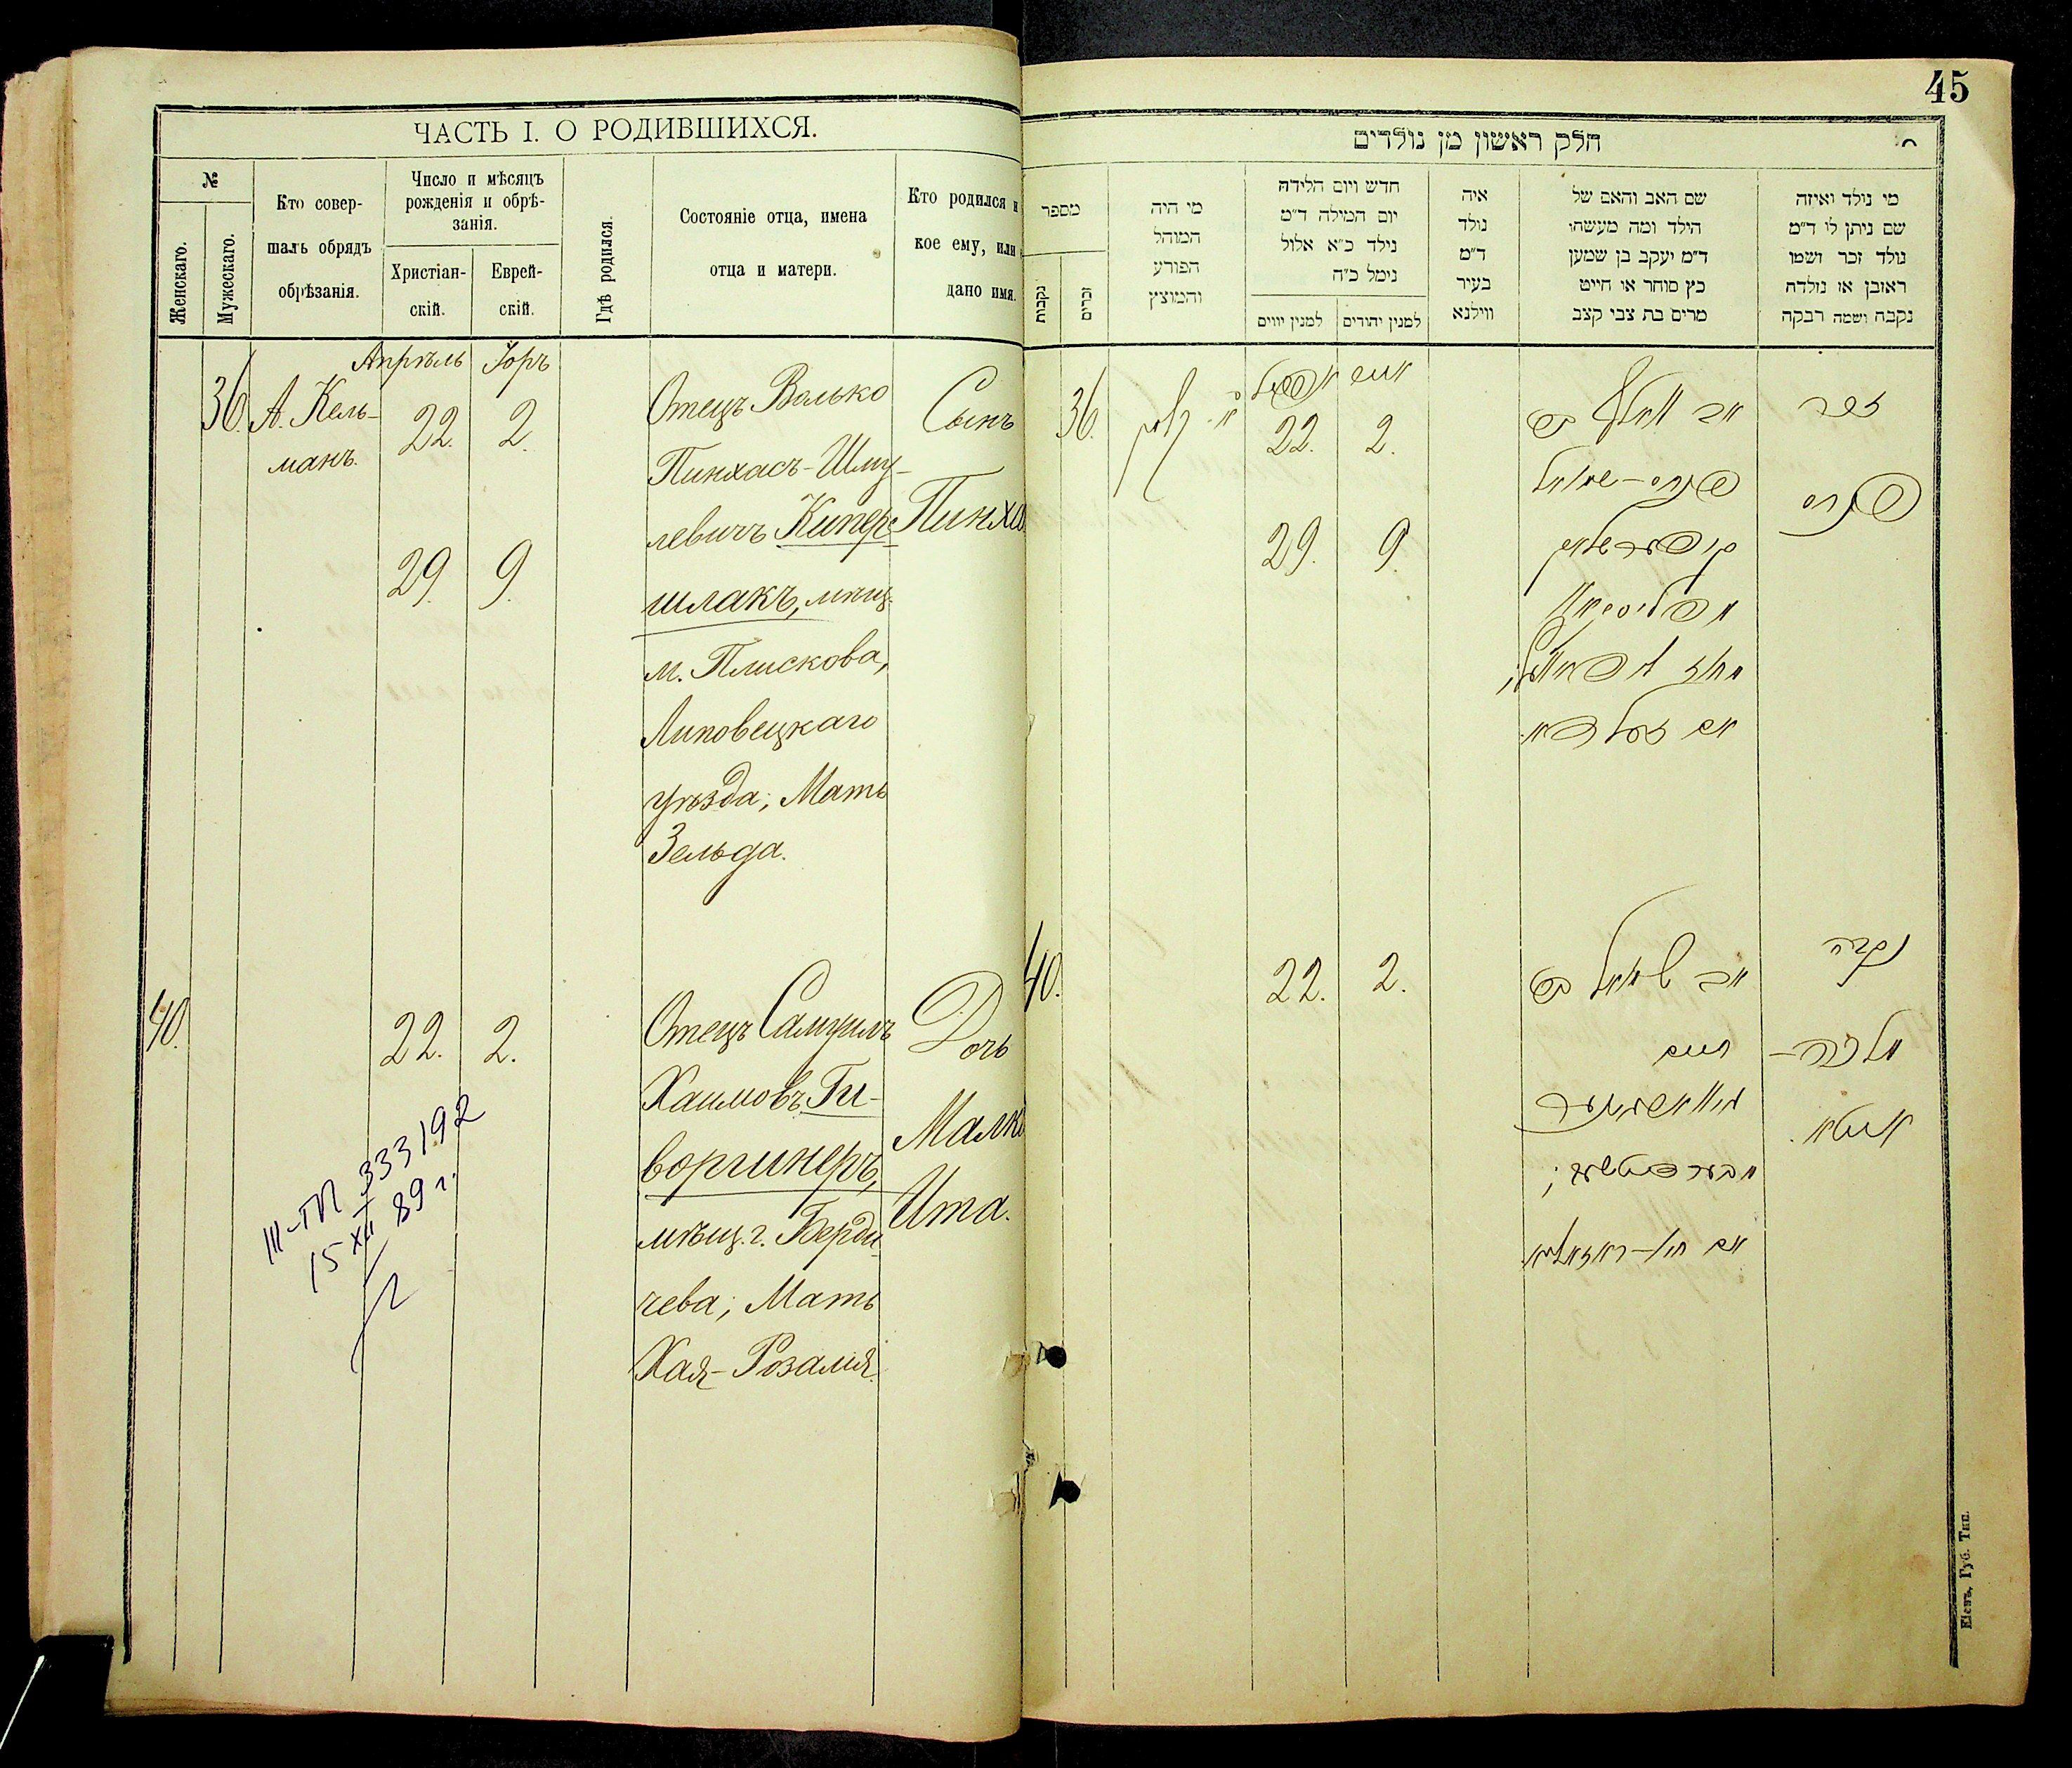 ЧАСТЬ I. О РОДИВШИХСЯ.
№
Женскаго.
Мужескаго.
Кто совер-
шалъ обрядъ
обрѣзанія.
Число и мѣсяцъ
рожденія и обрѣ-
занія.
Христіан-
скій.
Еврей-
скій.
Гдѣ родился.
Состояніе отца, имена
отца и матери.
Кто родился и
кое ему, или
дано имя.
Апрѣль Іоръ
36. А. Кель-
манъ.
22. 2.
29. 9.
Отецъ Волько
Пинхасъ-Шму-
левичъ Кипер-
шлакъ, мѣщ.
м. Плискова,
Липовецкаго
уѣзда; Мать
Зельда.
Сынъ
Пинха
40. 22. 2.
Отецъ Самуилъ
Хаимовъ Ги-
воргинеръ,
мѣщ. г. Берди-
чева; Мать
Хая-Розалия.
Дочь
Малка
Ита.
III-ТП 333192
15 XII 89 г.
45
חלק ראשון מן נולדים
מספר
נקבות
זכרים
מי היה
המוהל
הפורע
והמוצץ
חדש ויום הלידה
יום המילה ד״מ
נילד כ״א אלול
נימל כ״ח
למנין יווים
למנין יהודים
איה
נולד
ד״מ
בעיר
ווילנא
שם האב והאם של
הילד ומה מעשהו
ד״מ יעקב בן שמען
כץ סוחר או חייט
מרים בת צבי קצב
מי נולד ואיזה
שם ניתן לו ד״מ
נולד זכר ושמו
ראובן או נולדת
נקבה ושמה רבקה
36.
22. 2.
29. 9.
זכר
פנחס
פנחס-שמואל
קיפערשלאק
40.
22. 2.
נקבה
מלכה-
איטא.
אב שמואל בן
חיים
Кіевъ, Губ. Тип.